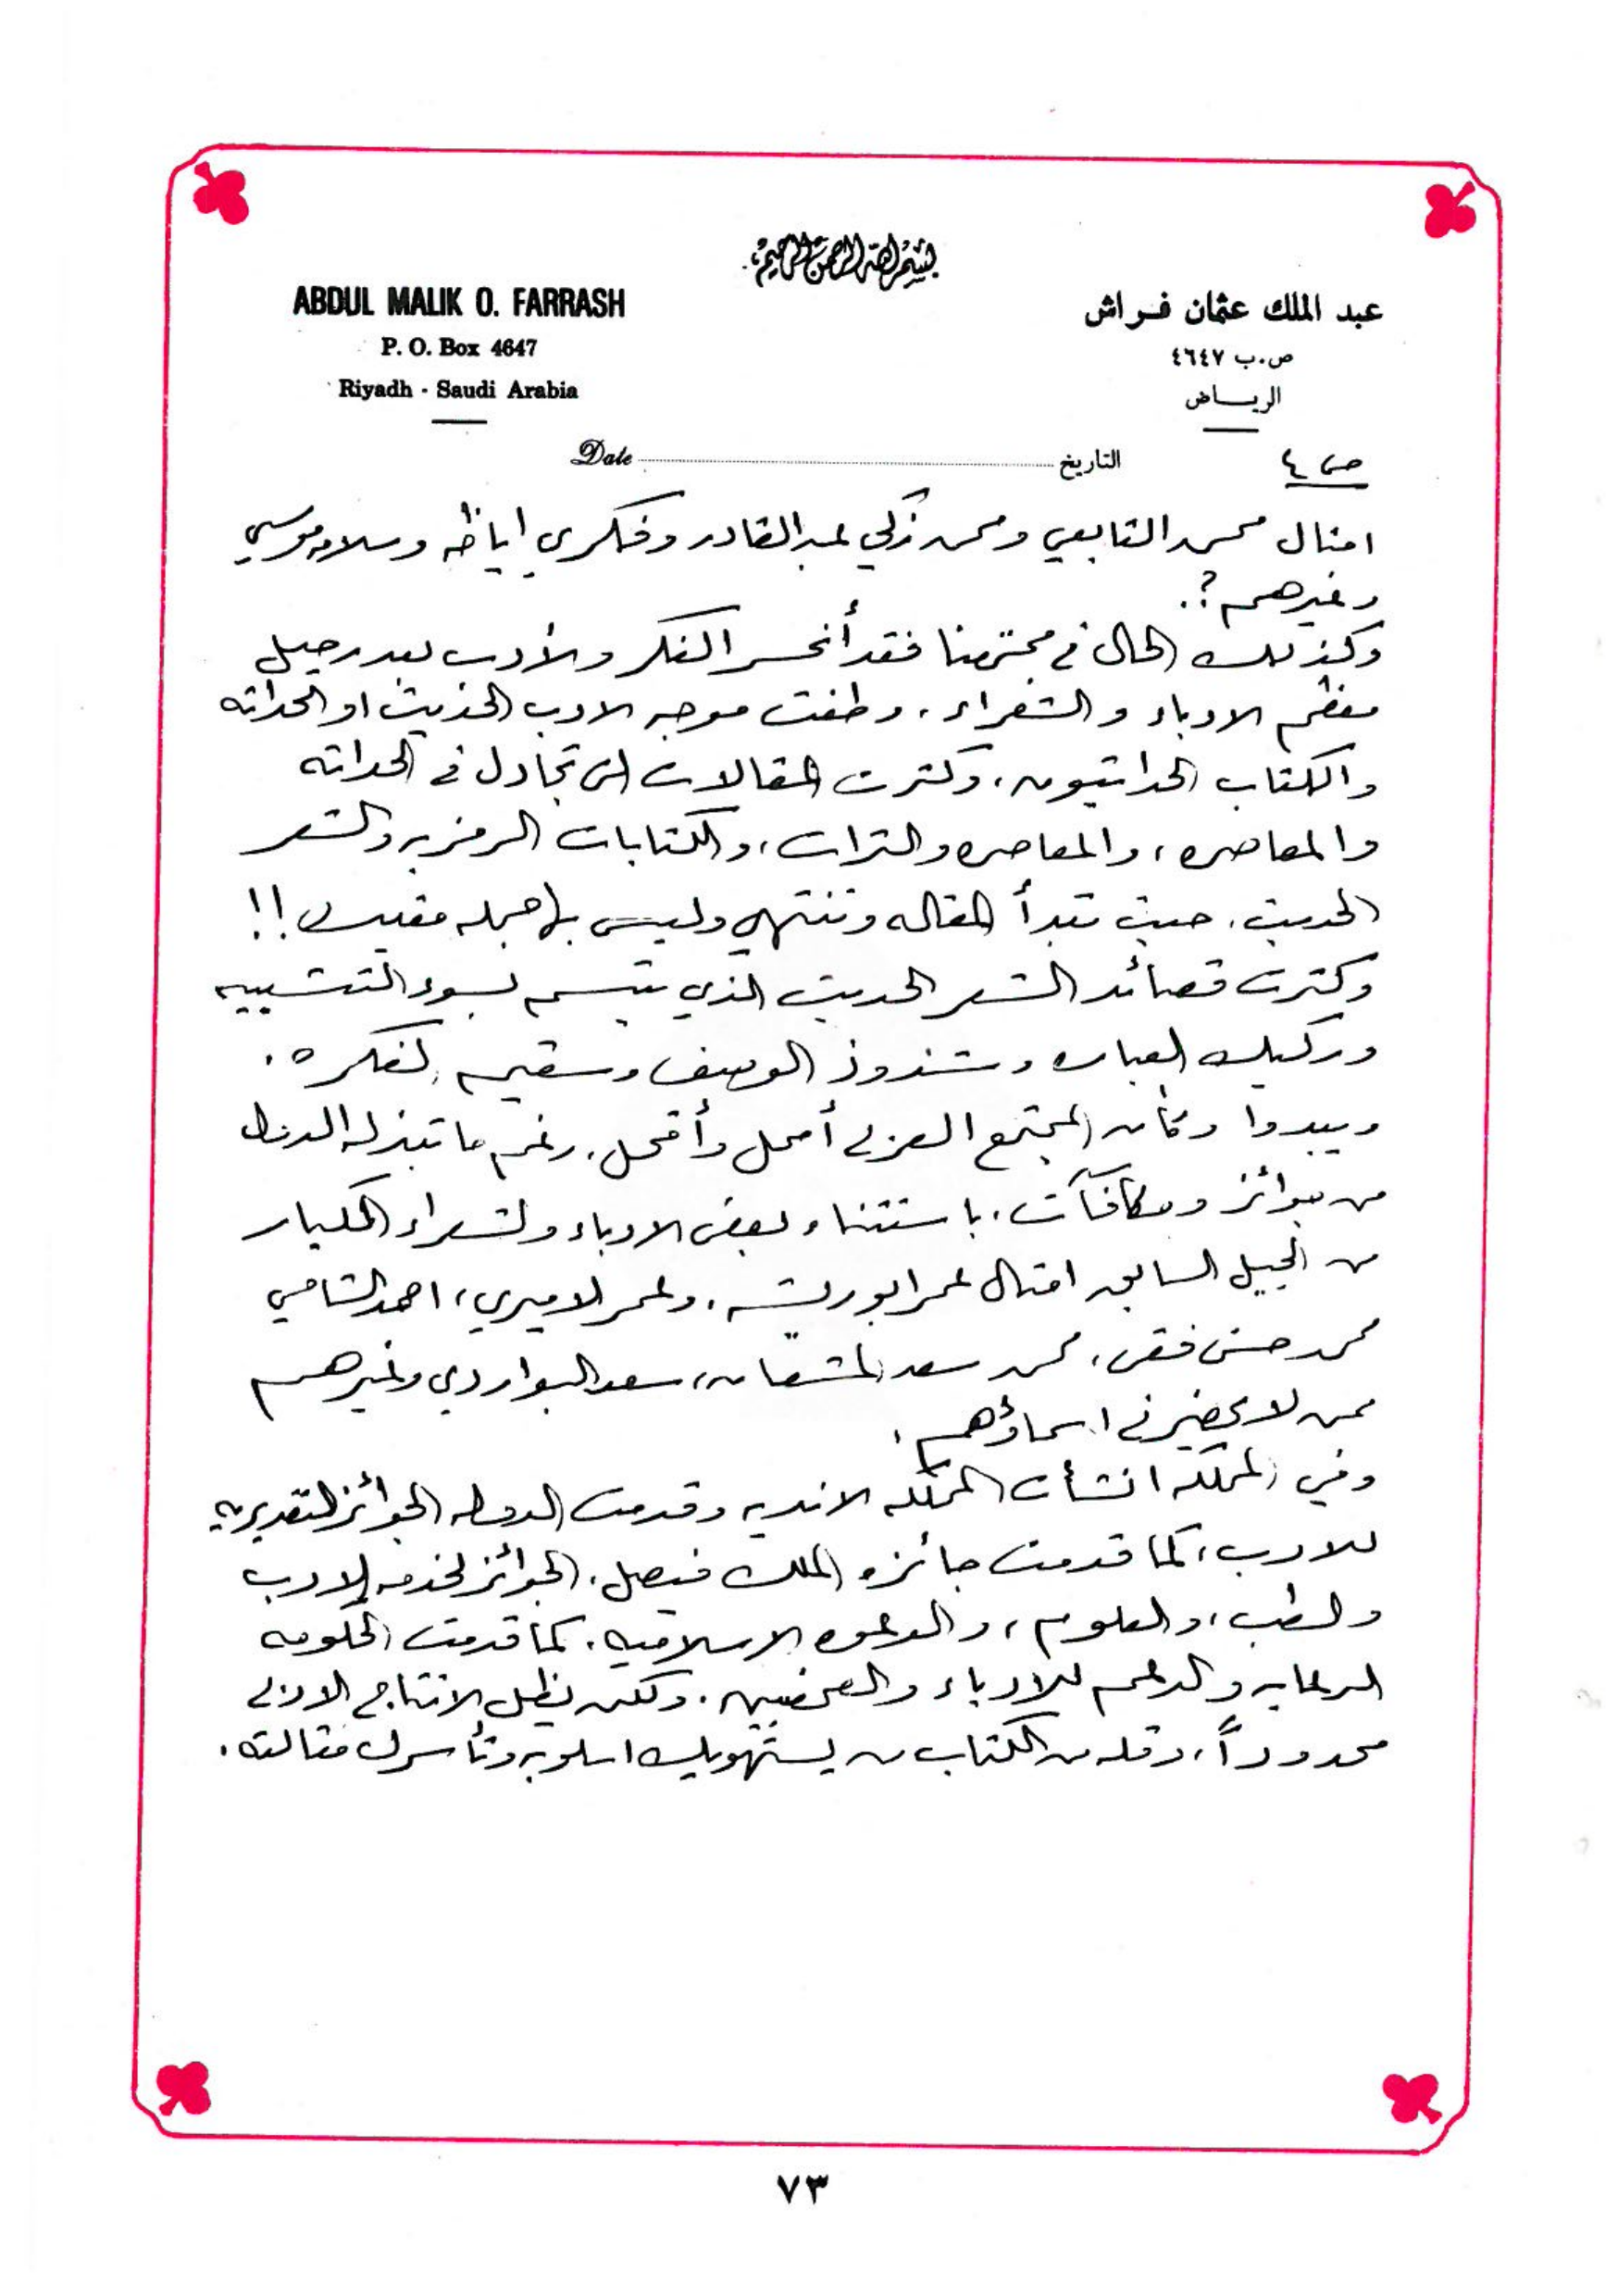 بسم الله الرحمن الرحيم
ABDUL MALIK O. FARRASH
P. O. Box 4647
Riyadh - Saudi Arabia
عبد الملك عثمان فراش
ص.ب ٤٦٤٧
الرياض
Date التاريخ
ص ٤
امثال محمد التابعي ومحمد زكي عبدالقادر وفكري اباظه وسلامه موسى
وغيرهم؟.
وكذلك الحال في مجتمعنا فقد أنحسر الفكر والأدب بعد رحيل
معظم الادباء والشعراء، وطغت موجه الادب الحديث او الحداثه
والكتاب الحداثيون، وكثرت المقالات التي تجادل في الحداثه
والمعاصره، والمعاصره والتراث، والكتابات الرمزيه والشعر
الحديث، حيث تبدأ المقاله وتنتهي وليس بها جمله مفيده!!
وكثرت قصائد الشعر الحديث الذي يتسم بسوء التشبيه
وركيك العباره وشذوذ الوصف وسقيم الفكره.
ويبدوا وكأن المجتمع العربي أمحل وأقحل، رغم ما تبذله الدوله
من جوائز ومكافآت، باستثناء بعض الادباء والشعراء الكبار
من الجيل السابق امثال عمر ابو ريشه، وعمر الاميري، احمد الشامي
محمد حسن فقي، محمد سعد المشعان، سعد البواردي وغيرهم
ممن لا يحضرني اسماؤهم.
وفي المملكه انشأت المملكه الانديه وقدمت الدوله الجوائز التقديريه
للادب، كما قدمت جائزه الملك فيصل، الجوائز لخدمه الادب
والطب، والعلوم، والدعوه الاسلاميه، كما قدمت الحكومه
الرعايه والدعم للادباء والصحفيين. ولكن يظل الانتاج الادبي
محدوداً، وقله من الكتاب من يستهويك اسلوبه وتأسرك مقالته.
٧٣